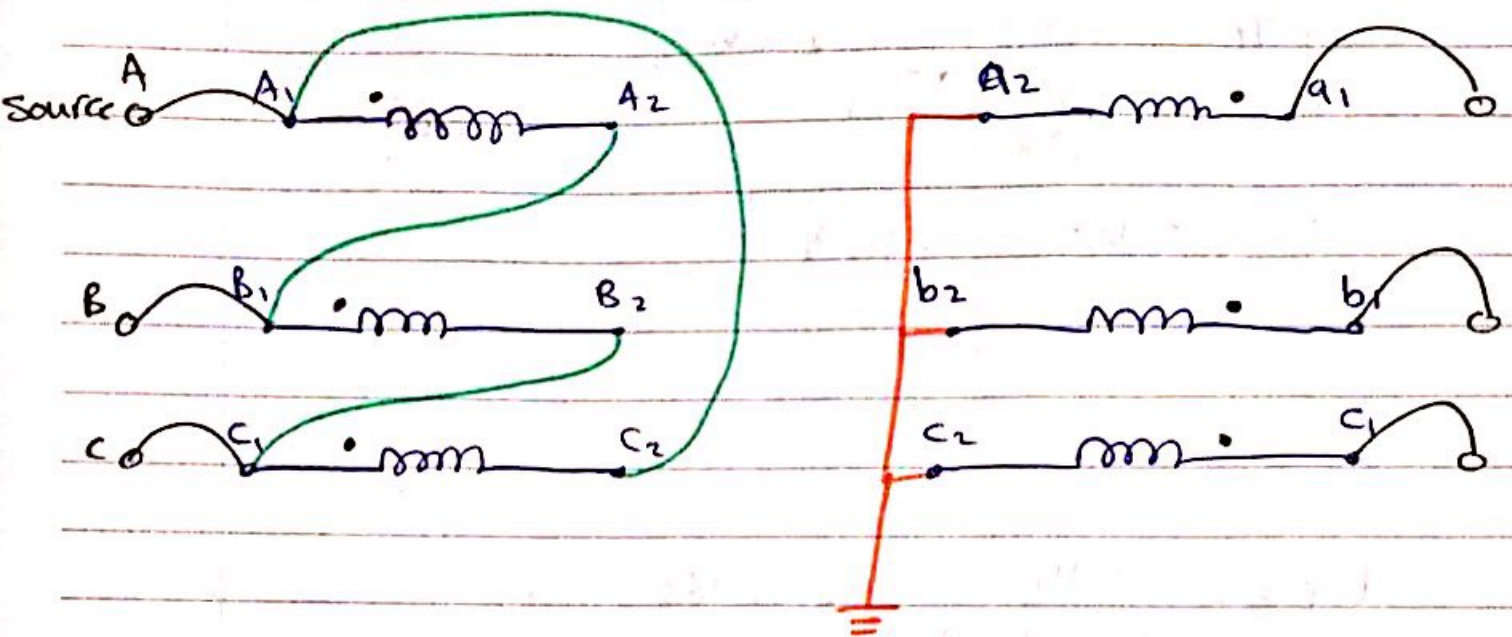 A
Source
A1
A2
a2
a1
B
B1
B2
b2
b1
C
C1
C2
C2
C1